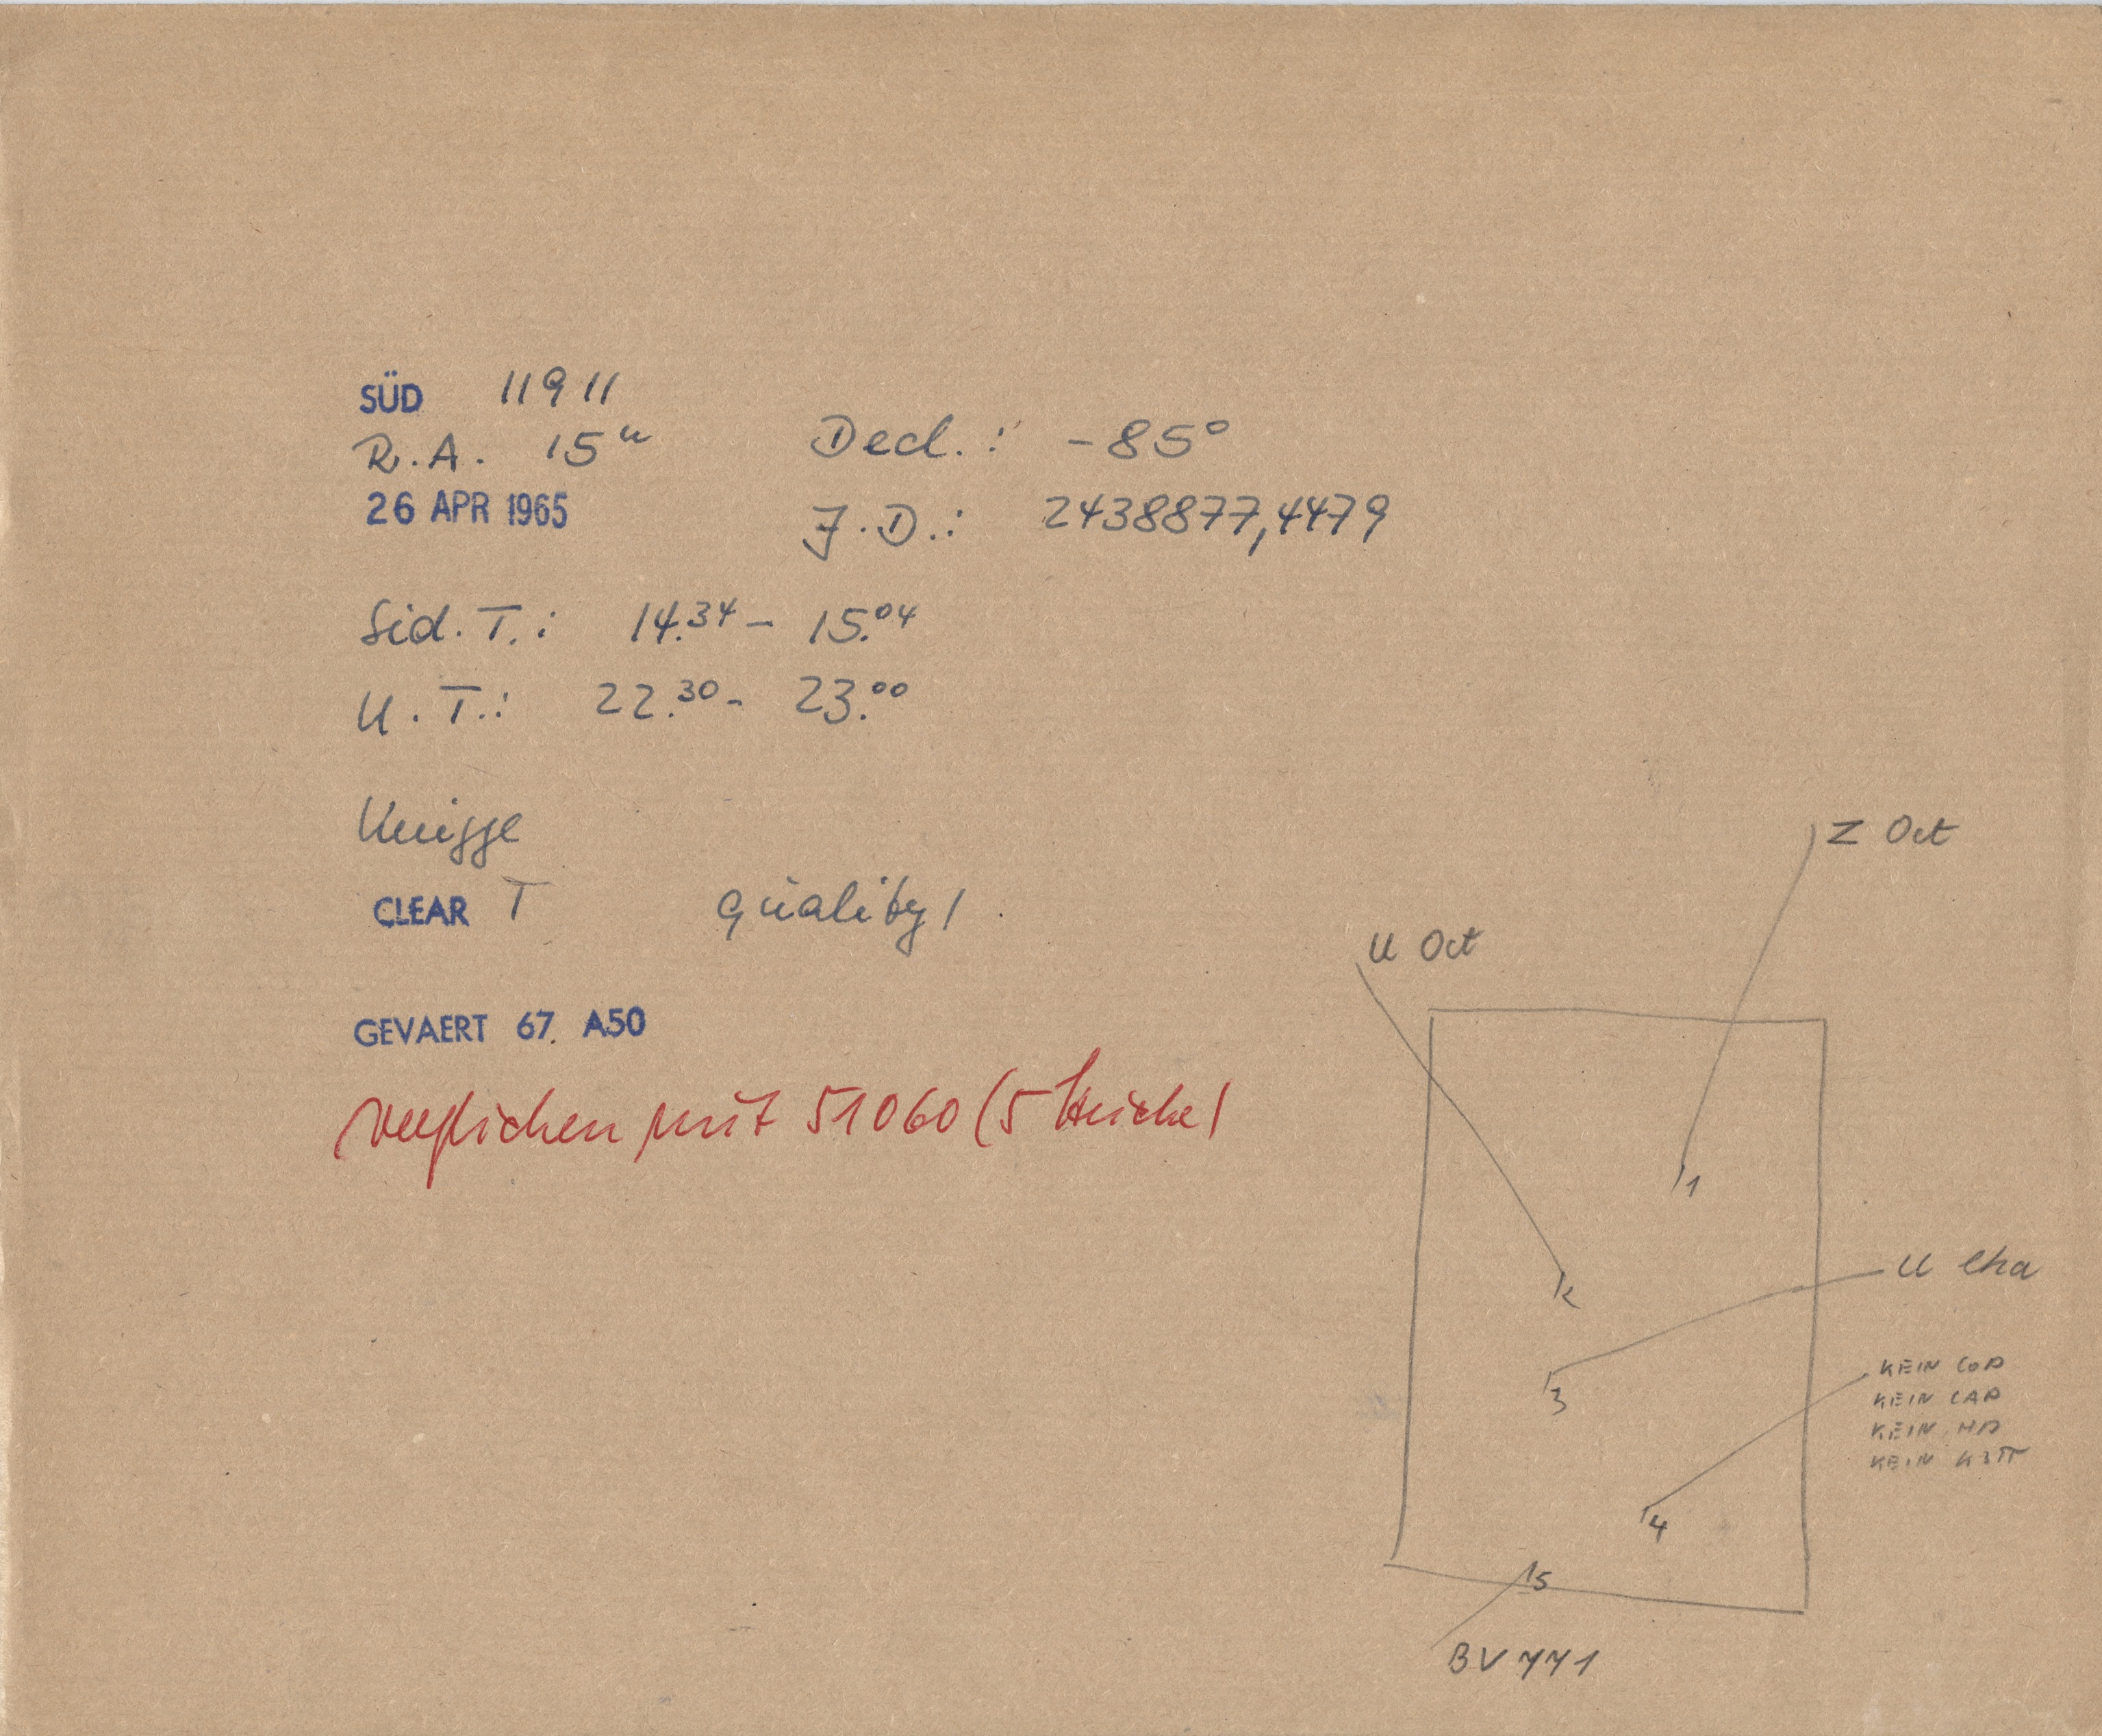 SÜD 11911
R.A. 15ᵘ Decl.: -85°
26 APR 1965 J.D.: 2438877,4479
Sid. T.: 14.³⁴ - 15.⁰⁴
U. T.: 22.³⁰ - 23.⁰⁰
Knigge
CLEAR T Quality 1.
GEVAERT 67. A50
verglichen mit 51060 (5 Striche)
Z Oct
U Oct
1
2
U Cha
3
KEIN CoD
KEIN CAP
KEIN HD
KEIN
4
5
BV 771